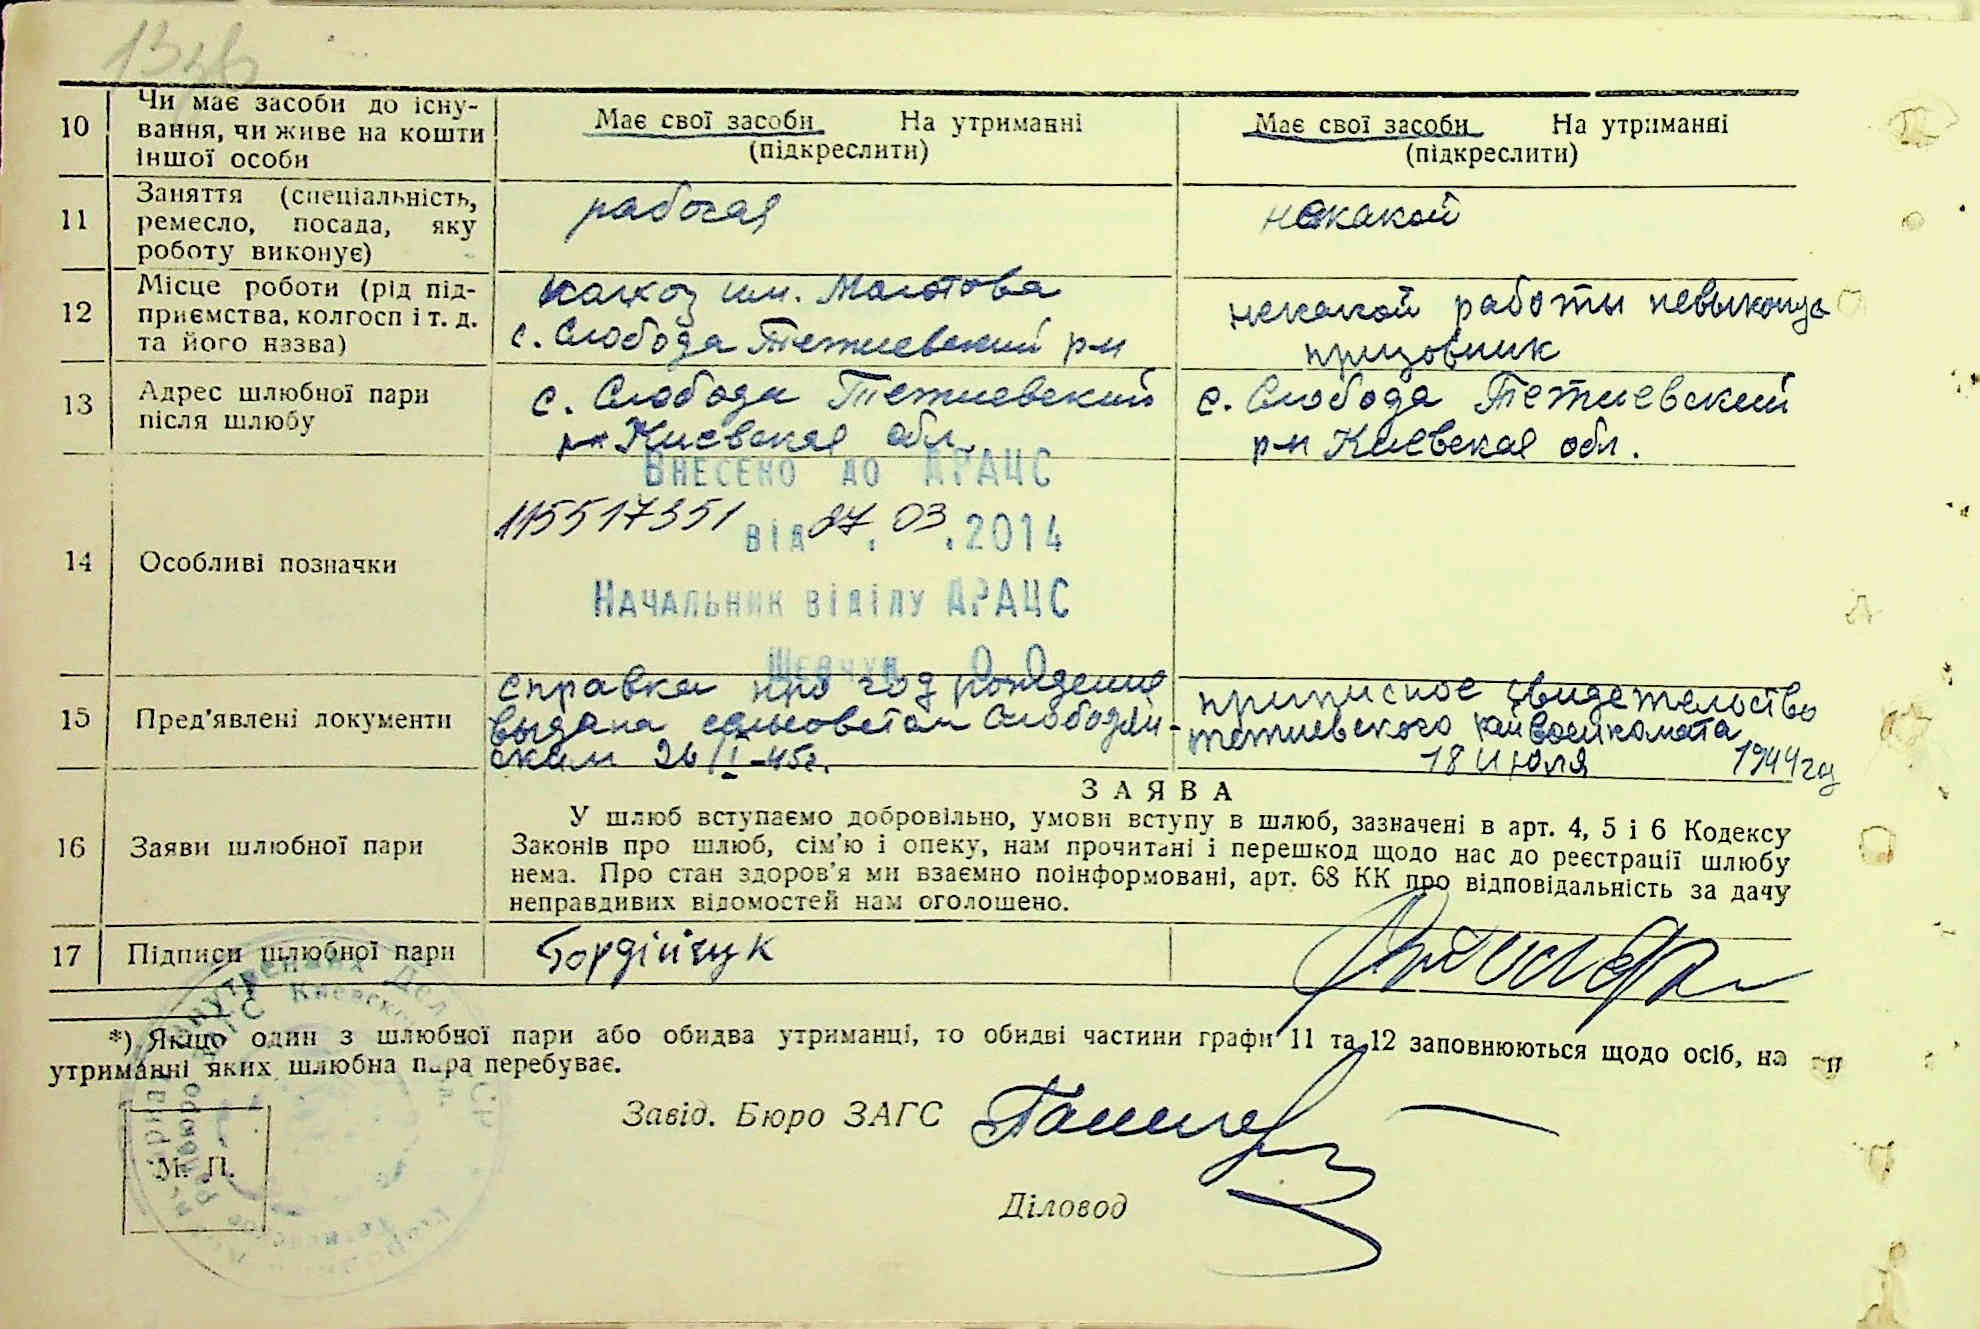 10 Чи має засоби до існу-
вання, чи живе на кошти
іншої особи
Має свої засоби На утриманні
(підкреслити)
Має свої засоби На утриманні
(підкреслити)
11 Заняття (спеціальність,
ремесло, посада, яку
роботу виконує)
рабочая
некакой
12 Місце роботи (рід під-
приємства, колгосп і т. д.
та його назва)
колхоз им. Молотова
с. Слобода Тетиевский р-н
некакой работы невыконує
призовник
13 Адрес шлюбної пари
після шлюбу
с. Слобода Тетиевский
р-н Киевская обл.
с. Слобода Тетиевский
р-н Киевская обл.
14 Особливі позначки
Внесено до ДРАЦС
115517351 від 27.03.2014
Начальник відділу ДРАЦС
Шевчук О.О.
15 Пред'явлені документи
справка про год рождения
выдана сельсоветом Слободи-
ским 26/I-45г.
приписное свидетельство
тетиевского райвоенкомата
18 июля 1944 год
16 Заяви шлюбної пари
ЗАЯВА
У шлюб вступаємо добровільно, умови вступу в шлюб, зазначені в арт. 4, 5 і 6 Кодексу
Законів про шлюб, сім'ю і опеку, нам прочитані і перешкод щодо нас до реєстрації шлюбу
нема. Про стан здоров'я ми взаємно поінформовані, арт. 68 КК про відповідальність за дачу
неправдивих відомостей нам оголошено.
17 Підписи шлюбної пари
Бордійчук
*) Якщо один з шлюбної пари або обидва утриманці, то обидві частини графи 11 та 12 заповнюються щодо осіб, на
утриманні яких шлюбна пара перебуває.
Завід. Бюро ЗАГС
М. П.
Діловод